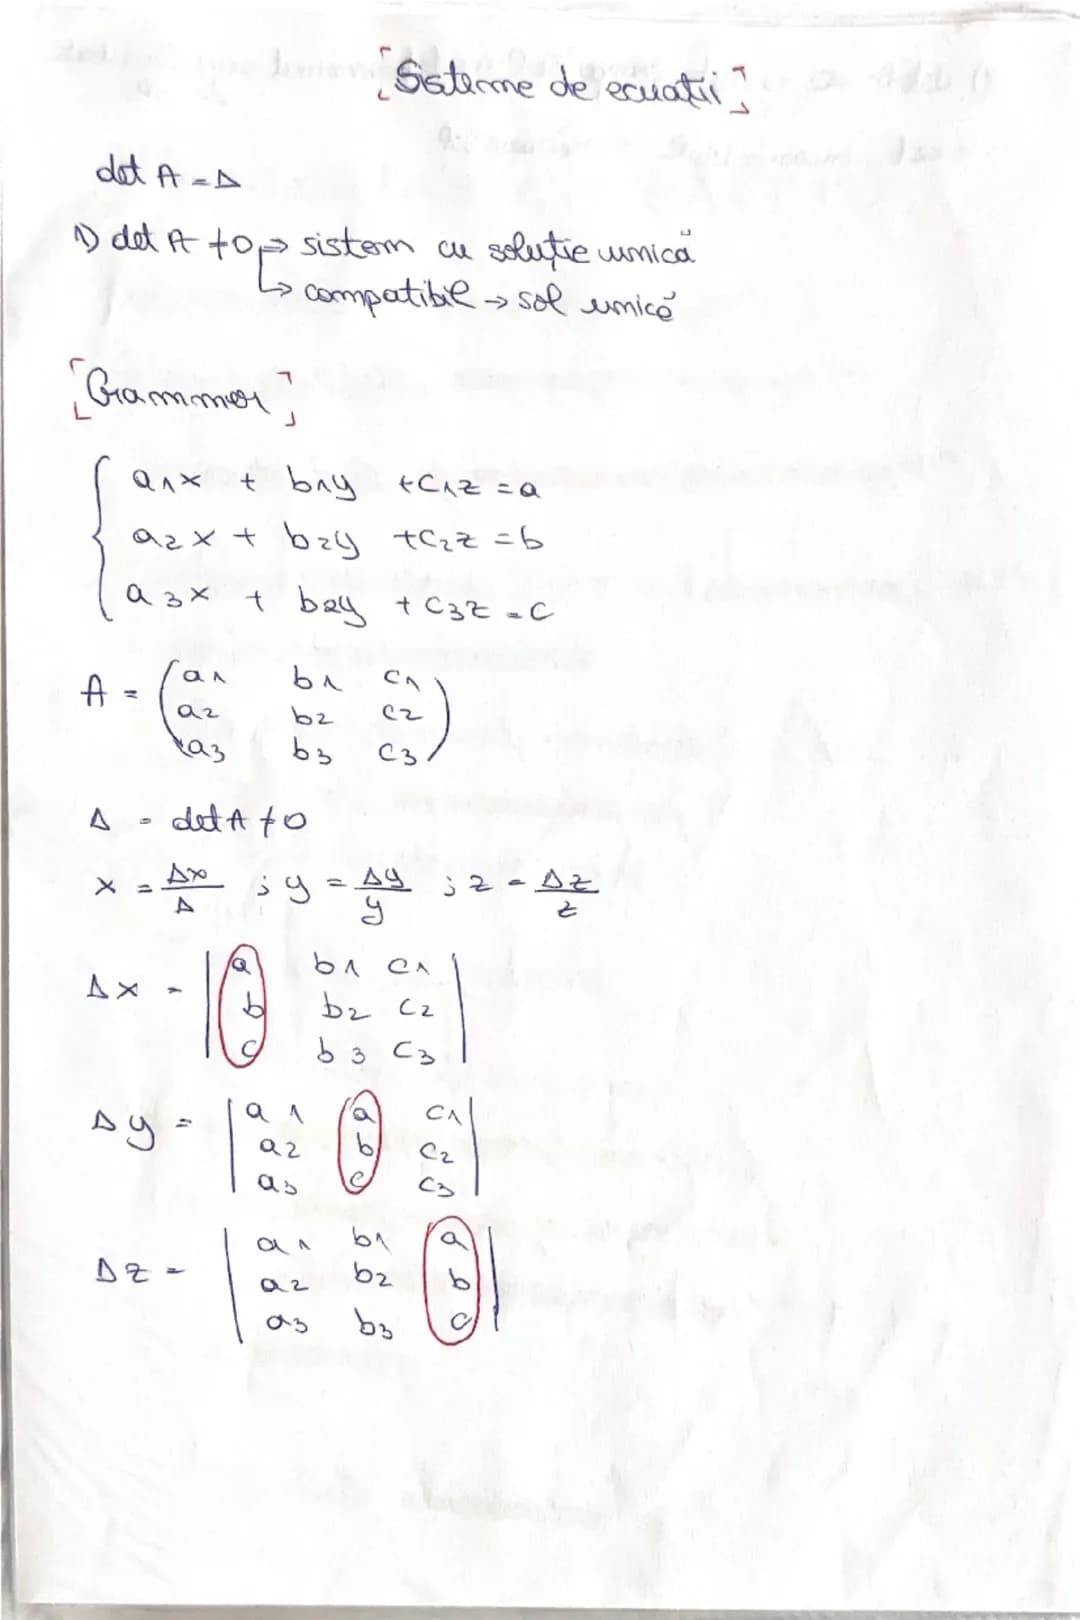 Sisteme de ecuatii
det A = Δ
1) det A ≠ 0 => sistem cu soluție unică
↳ compatibil → sol unică
Grammer
a1x + b1y + c1z = a
a2x + b2y + c2z = b
a3x + b2y + c3z = c
A = ( a1 b1 c1
a2 b2 c2
a3 b3 c3 )
Δ = det A ≠ 0
x = Δx/Δ ; y = Δy/y ; z = Δz/z
Δx = | a b1 c1
b b2 c2
c b3 c3 |
Δy = | a1 a c1
a2 b c2
a3 c c3 |
Δz = | a1 b1 a
a2 b2 b
a3 b3 c |